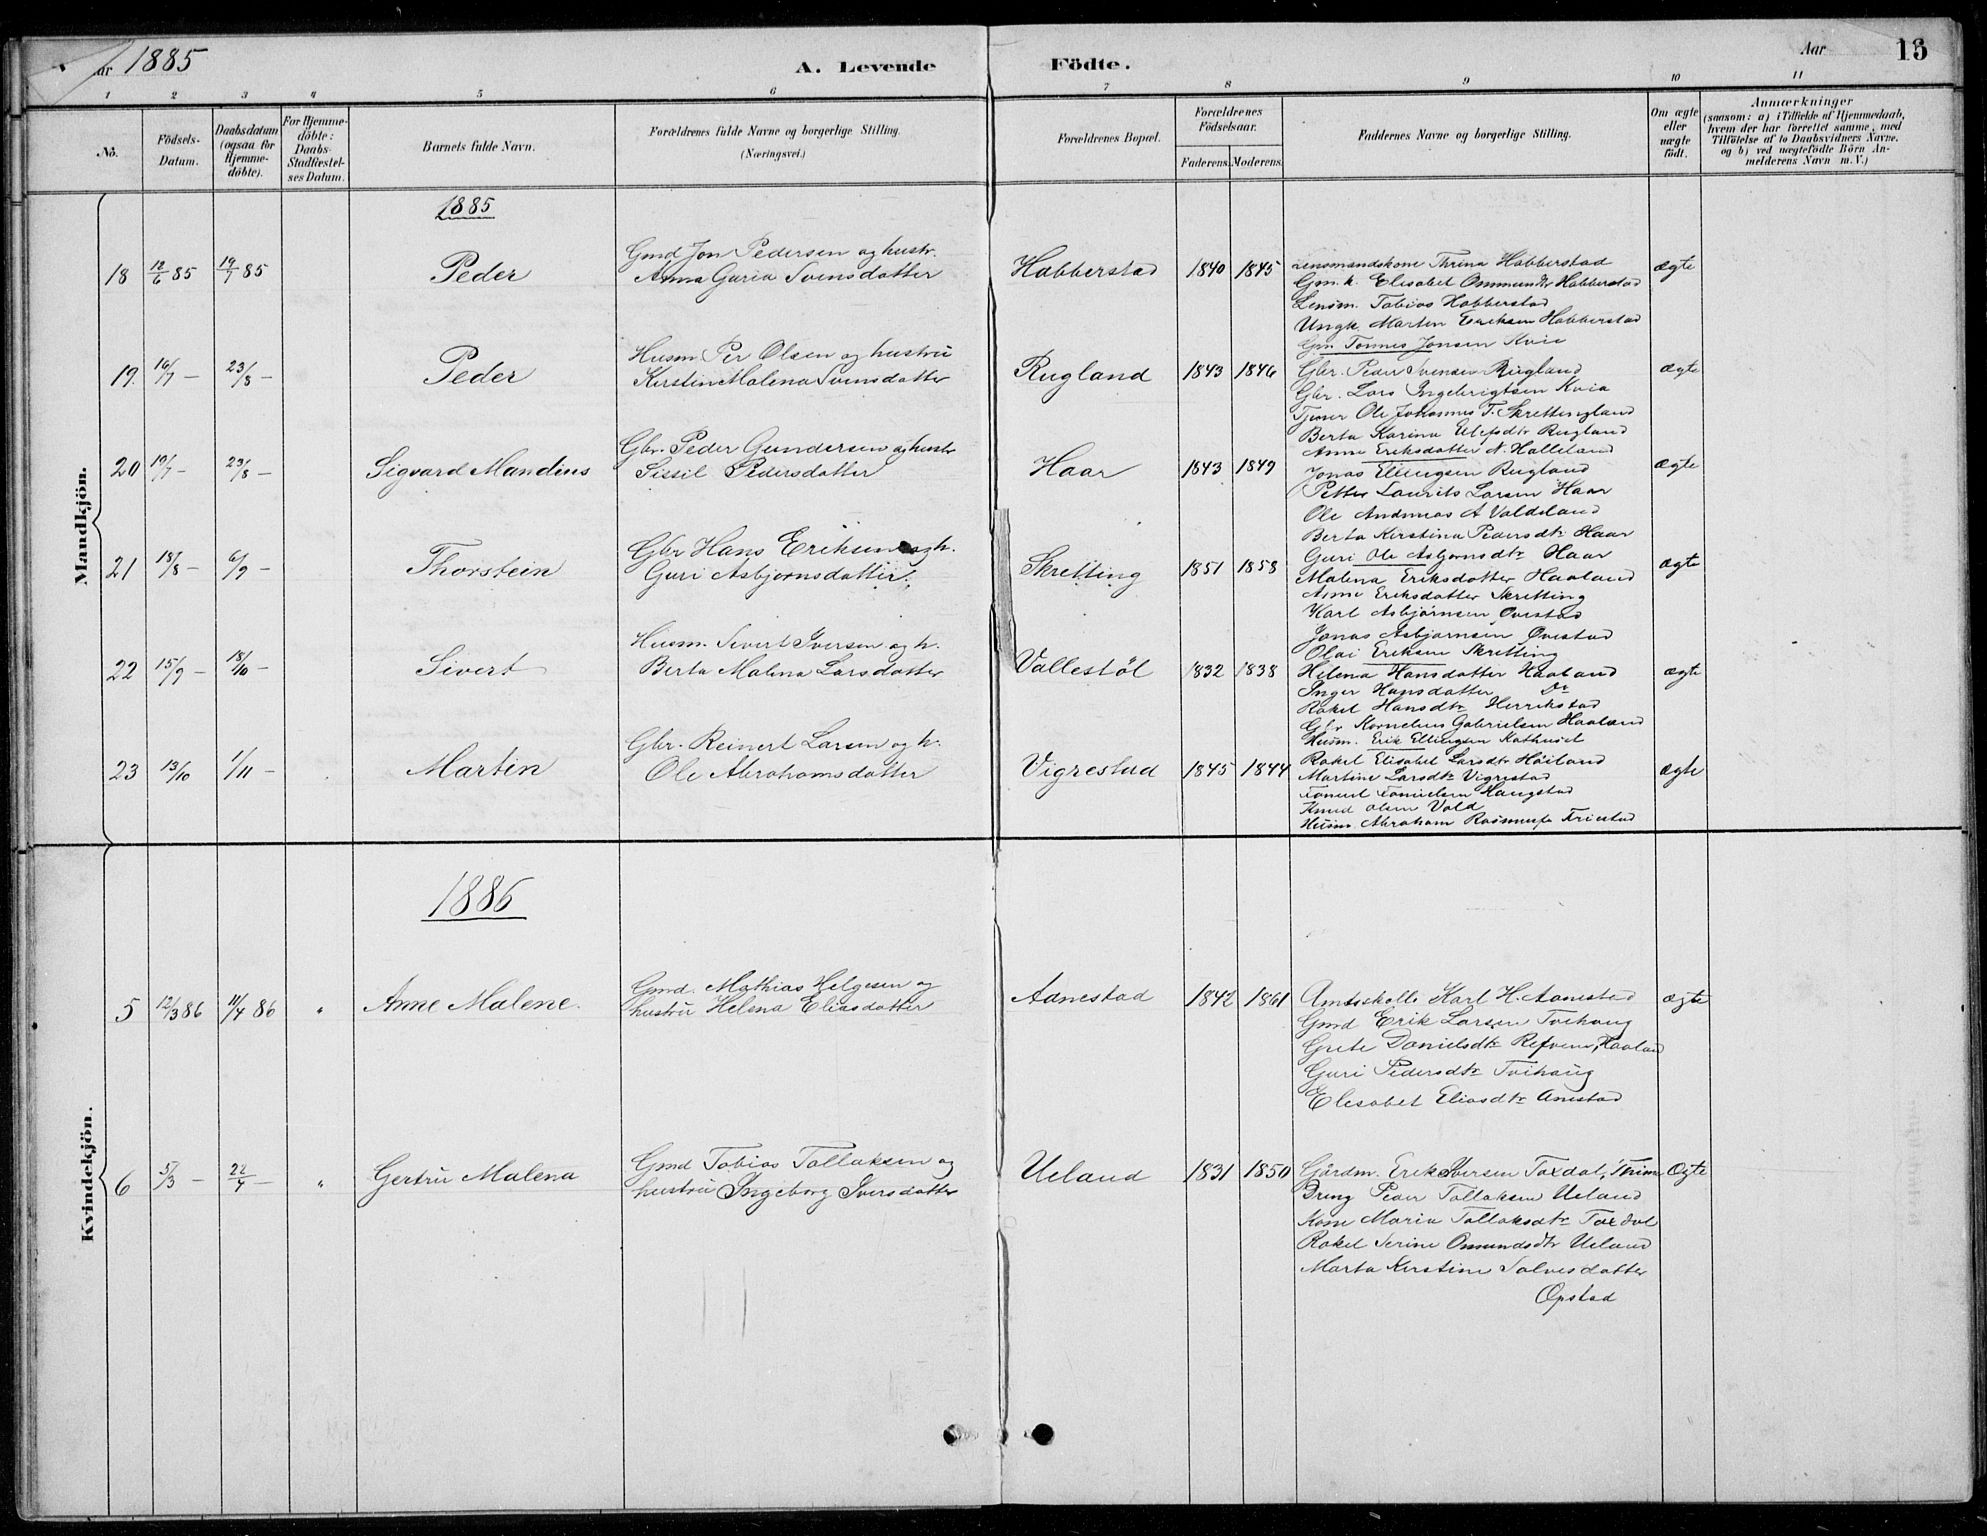 Aar 1885
A. Levende
Födte.
Aar
15
1 2 3 4 5 6 7 8 9 10 11
No.
Födsels-
Datum.
Daabsdatum
(ogsaa for
Hjemme-
döbte).
For Hjemme-
döbte:
Daabs-
Stadfæstel-
ses Datum.
Barnets fulde Navn.
Forældrenes fulde Navne og borgerlige Stilling.
(Næringsvei.)
Forældrenes Bopæl.
Forældrenes
Födselsaar.
Faderens.
Moderens.
Faddernes Navne og borgerlige Stilling.
Om ægte
eller
uægte
født.
Anmærkninger
(saasom: a) i Tilfælde af Hjemmedaab,
hvem der har forrettet samme, med
Tilföielse af to Daabsvidners Navne.
og b) ved uægtefödte Börn An-
melderens Navn m. V.)
Mandkjön.
1885
18 12/6 85 19/7 85 Peder
Gmd Jon Pedersen og hustr.
Anna Guria Svensdatter
Habberstad 1840 1845
Lensmandskone Thrina Habberstad
Gm. k. Elisabet Ommundsdtr Habberstad
Lensm. Tobias Habberstad
Ungk. Marten Eriksen Habberstad
Gm. Tonnes Jonsen Kvia
ægte
19. 16/7 – 23/8 – Peder
Husm Per Olsen og hustru
Kirstin Malena Svensdatter
Rugland 1843 1846
Gbr. Peder Svensen Rugland
Gbr. Lars Ingebrigtsen Kvia
Tjener Ole Johannes T. Skrettingland
Berta Karina Ulefsdtr Rugland
Anne Eriksdatter N. Halleland
ægte
20 19/7 – 23/8 – Sigvard Mandius
Gbr. Peder Gundersen og hustr
Sissil Pedersdatter
Haar 1843 1849
Jonas Ellingsen Rugland
Petter Laurits Larsen Haar
Ole Andreas A Valdeland
Berta Kirstina Pedersdtr Haar
Guri Ole Asbjornsdtr Haar
ægte
21 18/8 – 6/9 – Thorstein
Gbr Hans Eriksen og h.
Guri Asbjornsdatter
Skretting 1851 1858
Malena Eriksdatter Haaland
Anne Eriksdatter Skretting
Karl Asbjörnsen Ovestad
Jonas Asbjornsen Ovestad
Olai Eriksen Skretting
ægte
22 15/9 – 18/10 – Sivert
Husm. Sivert Iversen og h.
Berta Malena Larsdatter
Vallestöl 1832 1838
Helena Hansdatter Haaland
Inger Hansdatter Do
Rakel Hansdtr Herrikstad
Gbr Kornelius Gabrielsen Haaland
Husm. Erik Ellingsen Kathuset
ægte
23 13/10 1/11 – Martin
Gbr. Reinert Larsen og h.
Ole Abrahamsdatter
Vigrestad 1845 1844
Rakel Elisabet Larsdtr Höiland
Martine Larsdtr Vigrestad
Haugstad
Knud Olsen Vold
Husm. Abraham Rasmusse
ægte
Kvindekjön.
1886
5 12/3 86 11/4 86 " Anne Malene.
Gmd. Mathias Helgesen og
hustru Helena Eliasdatter
Aanestad 1842 1861
Karl H. Aanestad
Gmd Erik Larsen Tvihaug
Grete Danielsdtr Refvem, Haaland
Guri Pedersdtr Tvihaug
Elesabet Eliasdtr Anestad
ægte
6 5/3 – 22/4 – " Gertru Malena
Gmd Tobias Tollaksen og
hustru Ingeborg Iversdatter
Ueland 1831 1850
Gårdm. Erik Iversen Taxdal, Thime
Dreng Peder Tollaksen Ueland
Kone Maria Tollaksdtr Taxdal
Rakel Serine Omundsdtr Ueland
Marta Kirstine Salvesdatter
Opstad
Ægte